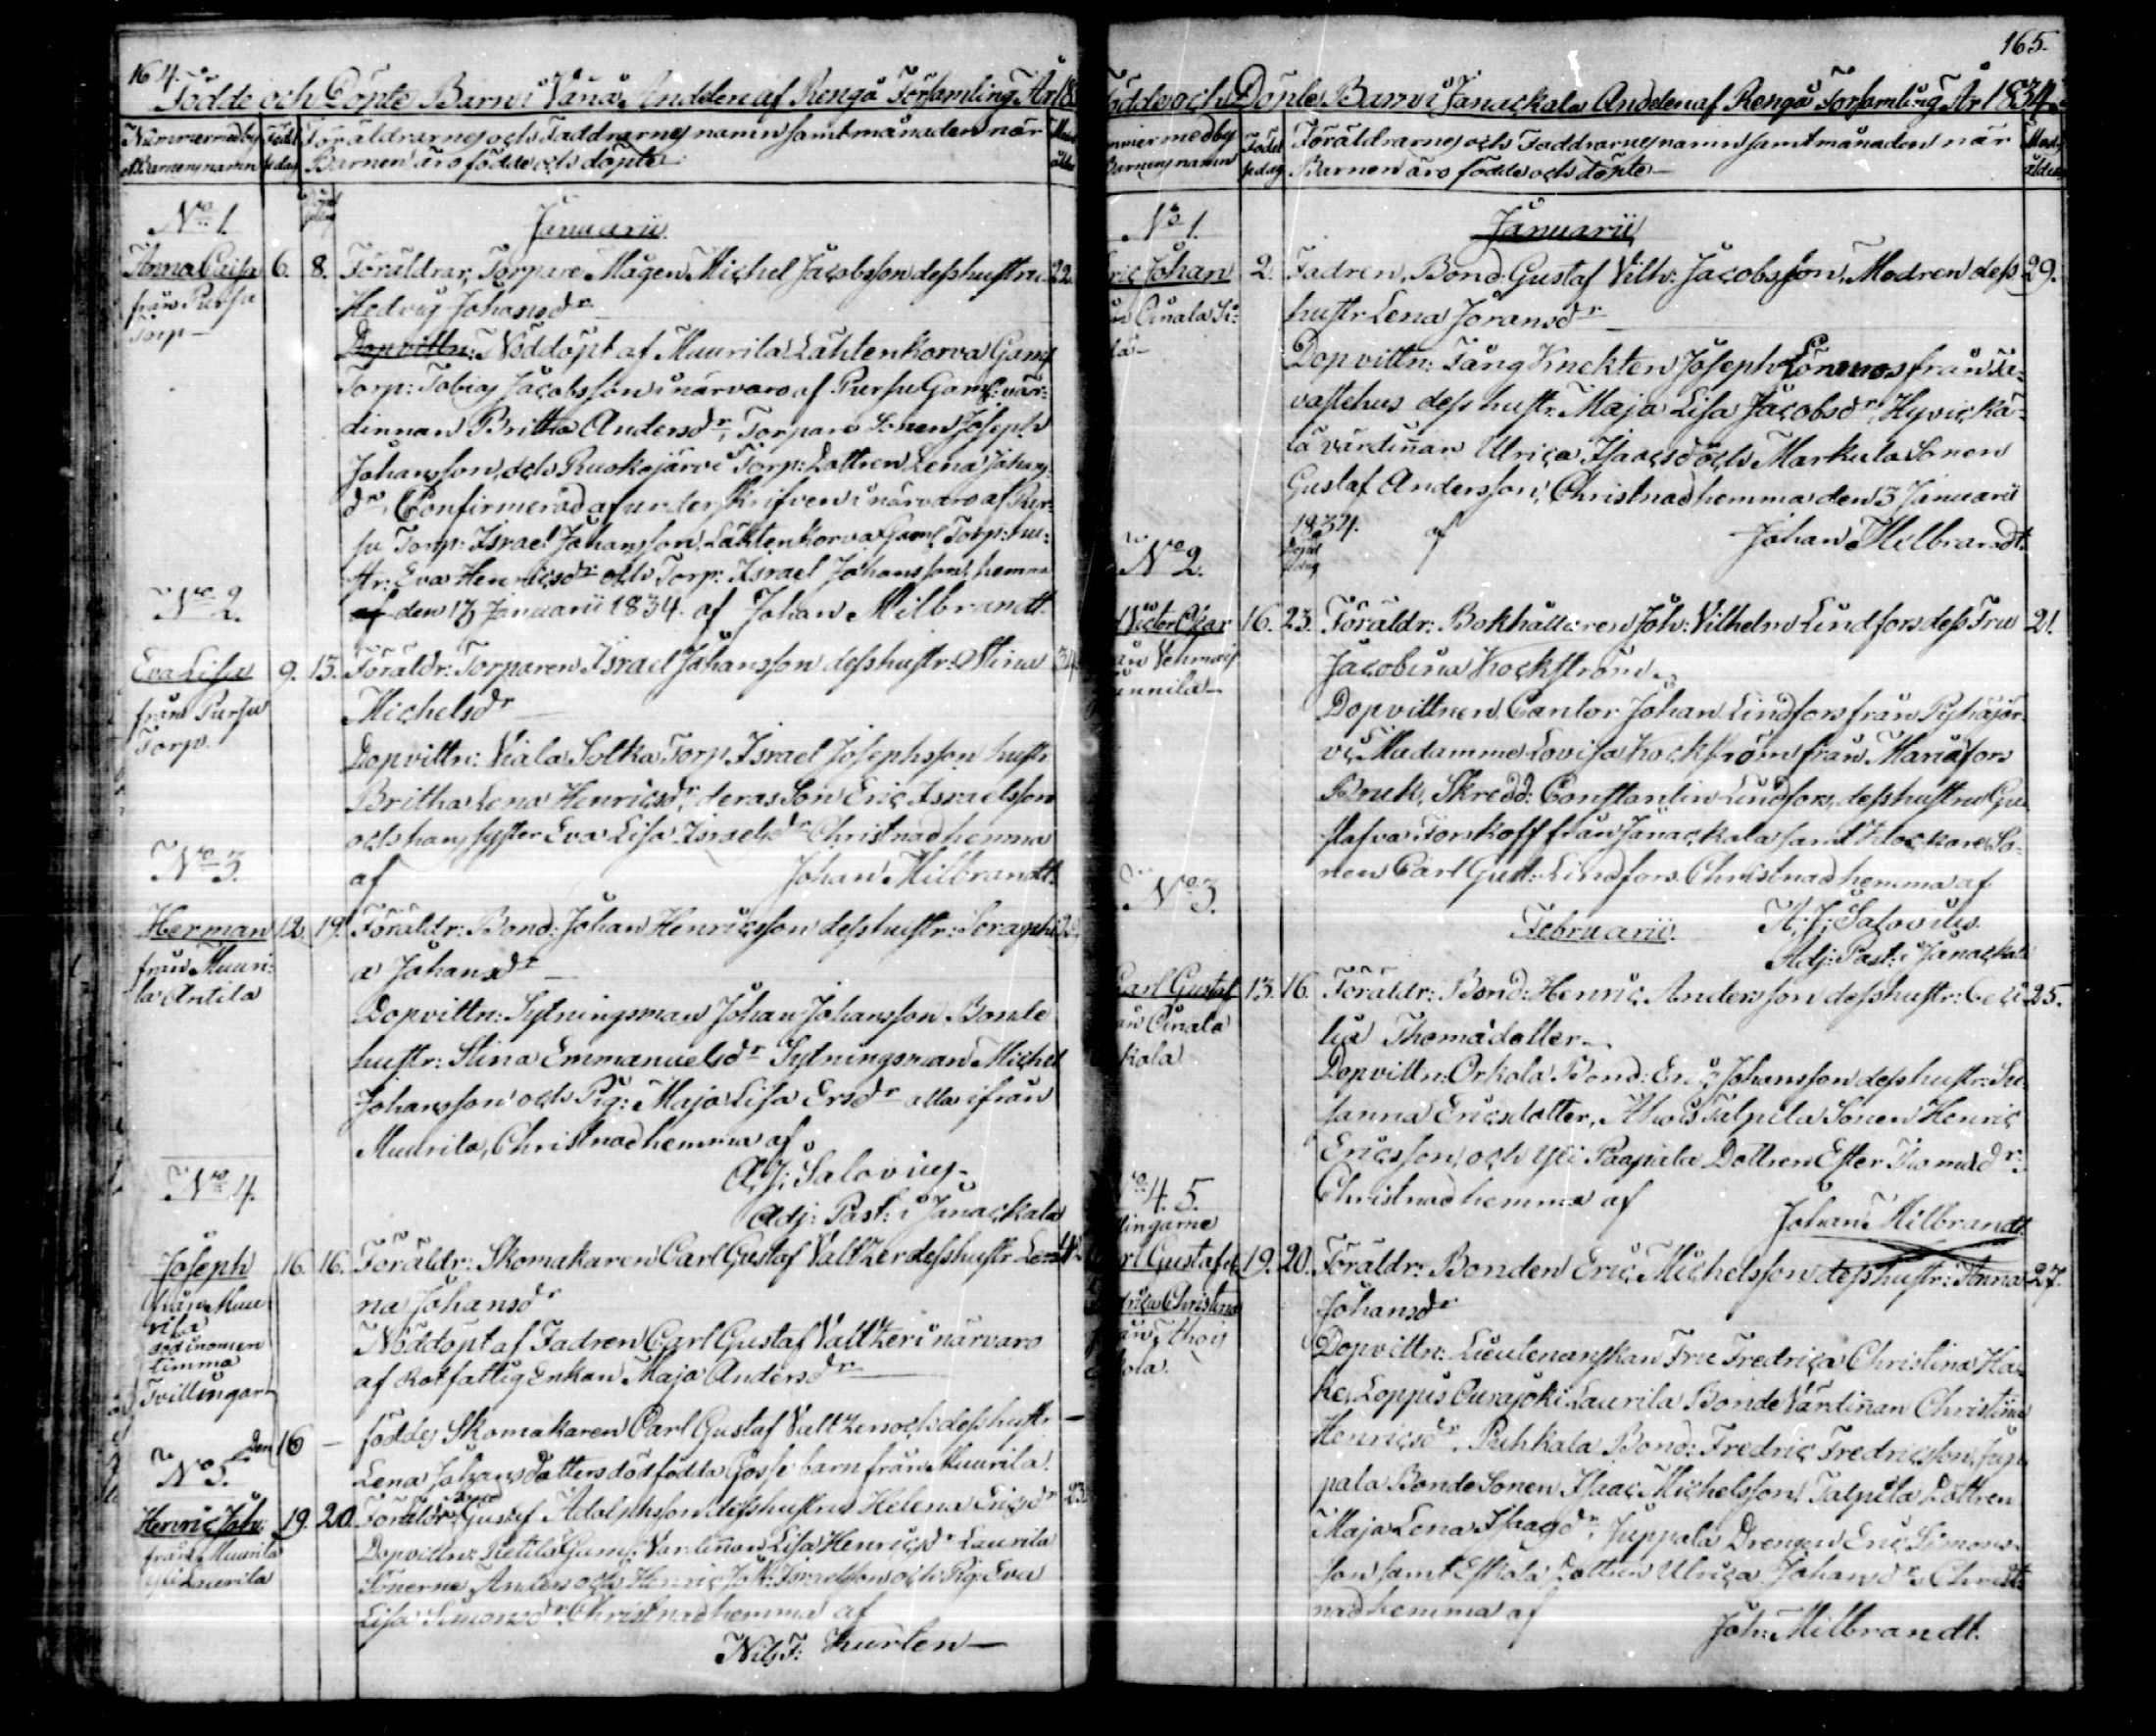 164.
Födde och Döpte Barn i Vånå Andelen af Rengo Församling År 18
Nummer med by
o Barnens namn
Födel
sedag
Föräldrarnes och Faddrarnes namn samt månaden när
Barnen äro födde och döpte
No 1.
Januarii
Anna Caisa 6. 8. Föräldrar, Torpare Mågen Michel Jacobsson dess hustru 22.
från Pursu
Torp
Hedvig Johansdr
Dopvittn: Nöddöpt af Muurila Lähtenkorva Gaml
Torp: Tobias Jacobsson i närvaro af Pursu Gaml: vär-
dinnan Britha Andersdr, Torpare Sonen Joseph
Johansson, och Ruokojärvi Torp: Dottren Lena Johans
dr, Confirmerad af underskrifven i närvaro af Pur-
su Torp: Israel Johansson, Lähtenkorva Gaml Torp: hu-
str: Eva Henricsdr och Torp: Israel Johansson, hemma
den 13 Januarii 1834. af Johan Milbrandt.
No 2.
Eva Lisa 9. 13. Föräldr: Torparen Israel Johansson dess hustr: Stina
från Pursu
Torp.
Michelsdr
Dopvittn: Viala Solka Torp Israel Josephsson hustr
Britha Lena Henricsdr, deras Son Eric Israelsson
och hans syster Eva Lisa Israelsdr Christnad hemma
af Johan Milbrandt.
No 3.
Herman 12. 19. Föräldr: Bond: Johan Henricsson dess hustr: Seraphi
från Muuri-
la Antila
a Johansdr
Dopvittn: Sytningsman Johan Johansson Bonde
hustr: Stina Emmanuelsdr Sytningsman Michel
Johansson och Pig: Maja Lisa Ersdr alla ifrån
Muurila, Christnad hemma af
A. J. Salovius
Adj: Past: i Janackala
No 4.
Joseph 16. 16. Föräldr: Skomakaren Carl Gustaf Valtzer dess hustr Lee
från Muu
rila
död inom en
timma
Tvillingar
na Johansdr
Nöddöpt af Fadren Carl Gustaf Valtzer i närvaro
af Rotfattig Enkan Maja Andersdr
Den 16 — föddes Skomakaren Carl Gustaf Valtzer och dess hustr —
Lena Johansdotters dödfödda Gosse barn från Muurila.
No 5.
Henric Joh: 19. 20. Föräldr: Bond Gustaf Adolphsson dess hustru Helena Ericsdr 23
från Muurila
Yli Laurila
Dopvittn: Pietilä Gaml: Vardinnan Lisa Henricsdr Laurila
Sönerne Anders och Henric Joh: Israelsson och Pig: Eva
Lisa Simonsdr, Christnad hemma af
Nils J: Thurlen
165.
Födde och Döpte Barn i Janackala Andelen af Rengo Församling År 1834.
mmer med by
Barnens namn
Födel
sedag
Föräldrarnes och Faddrarnes namn samt månaden när
Barnen äro födde och döpte
Mod
ålder
No 1.
Januarii
Eric Johan 2. Fadren, Bond: Gustaf Vilh: Jacobsson, Modren dess 29.
hustr Lena Jöransdr
Dopvittn: Fång Knekten Joseph Lönnros från Ta-
vastehus dess hustr: Maja Lisa Jacobsdr, Hyvickä-
lä värdinnan Ulrica Isaacsd och Markula Sonen
Gustaf Andersson, Christnad hemma den 3 Januarii
1834. af Johan Milbrandt.
No 2.
Victor Oscar 16. 23. Föräldr: Bokhållaren Joh: Vilhelm Lindfors dess Fru 21.
Jacobina Kockström
Dopvittnen Cantor Johan Lindfors från Pyhäjär-
vi, Madamme Lovisa Kockström från Mariæfors
Bruk, Skredd: Constantin Lindfors, dess hustru Gu
stafva Torskoff från Janackala samt Klockare So-
nen Carl Gust: Lindfors. Christnad hemma af
A. J. Salovius.
Adj: Past: i Janackala
No 3.
Februarii.
Carl Gustaf 13. 16. Föräldr: Bond: Henric Andersson dess hustr: Ceci 25.
lia Thomädotter
Dopvittn: Orkola Bond: Eric Johansson dess hustr: Su
sanna Ericsdotter, Ahois Talpila Sonen Henric
Ericsson, och Yli Paapala Dottren Ester Thomædr
Christnad hemma af
Johan Milbrandt.
4. 5.
lingarne
Carl Gustaf o 19. 20. Föräldr: Bonden Eric Michelsson dess hustr: Anna 27.
drica Christina
Johansdr
Dopvittn: Lieutenanskan Fru Fredrica Christina Ha
ke, Loppis Ourajoki Laurila Bonde Värdinnan Christina
Henricsdr, Puhkala Bond: Fredric Fredricsson, Jup
pala Bonde Sonen Isaac Michelsson, Talpila Dottren
Maja Lena Isaacsdr, Juppala Drengen Eric Simons-
son samt Eskola Dottren Ulrica Johansdr, Christ-
nad hemma af
Joh: Milbrandt.